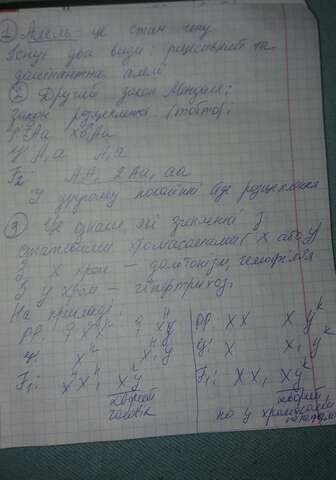 ① Алель - це стан гену
Існує два види: рецесивний та
домінантна алелі
② Другий закон Менделя:
закон розщеплення (тобто):
P: ♀Aa x ♂Aa
G: A, a    A, a
F₂: AA, 2Aa, aa
У другому поколінні буде розщеплення
③ Це ознаки, які зчеплені з
статевими хромосомами (X або Y)
З X хром - дальтонізм, гемофілія
З у хром - гіпертрихоз
На прикладі:
PP: ♀ XX    XY    PP: XX    XYᵏ
G: Xʰ    Y    G: X    X, Yᵏ
F₁:    F₁: XX, XYᵏ
хворий    хворий
чоловік    по у хромосомі